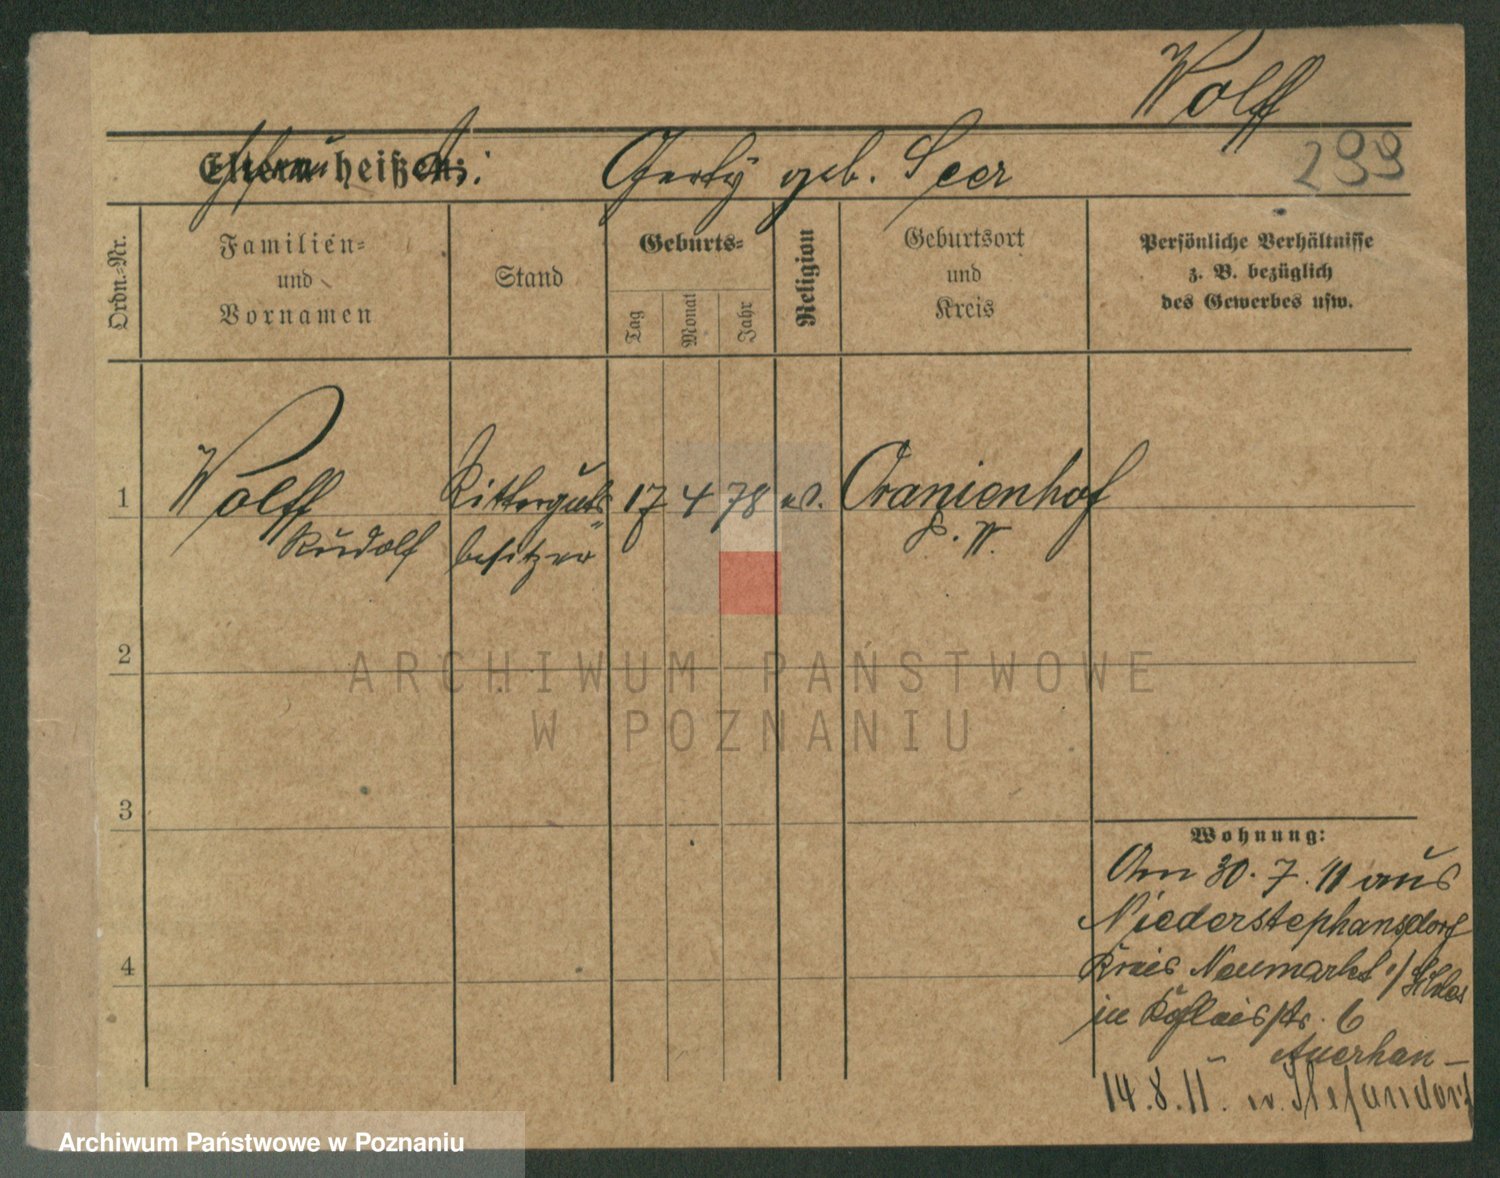 Wolff
299
Eltern heißen:
Gerty geb. Seer
Ordn.=Nr.
Familien=
und
Vornamen
Stand
Geburts=
Tag
Monat
Jahr
Religion
Geburtsort
und
Kreis
Persönliche Verhältnisse
z. B. bezüglich
des Gewerbes usw.
1
Wolff
Rudolf
Ritterguts
besitzer
17
4
78
ev.
Oranienhof
2
3
4
Wohnung:
Am 30. 7. 11 aus
Niederstephansdorf
Kreis Neumarkt
in 6
14.8.11. n. Stefansdorf
ARCHIWUM PAŃSTWOWE
W POZNANIU
Archiwum Państwowe w Poznaniu